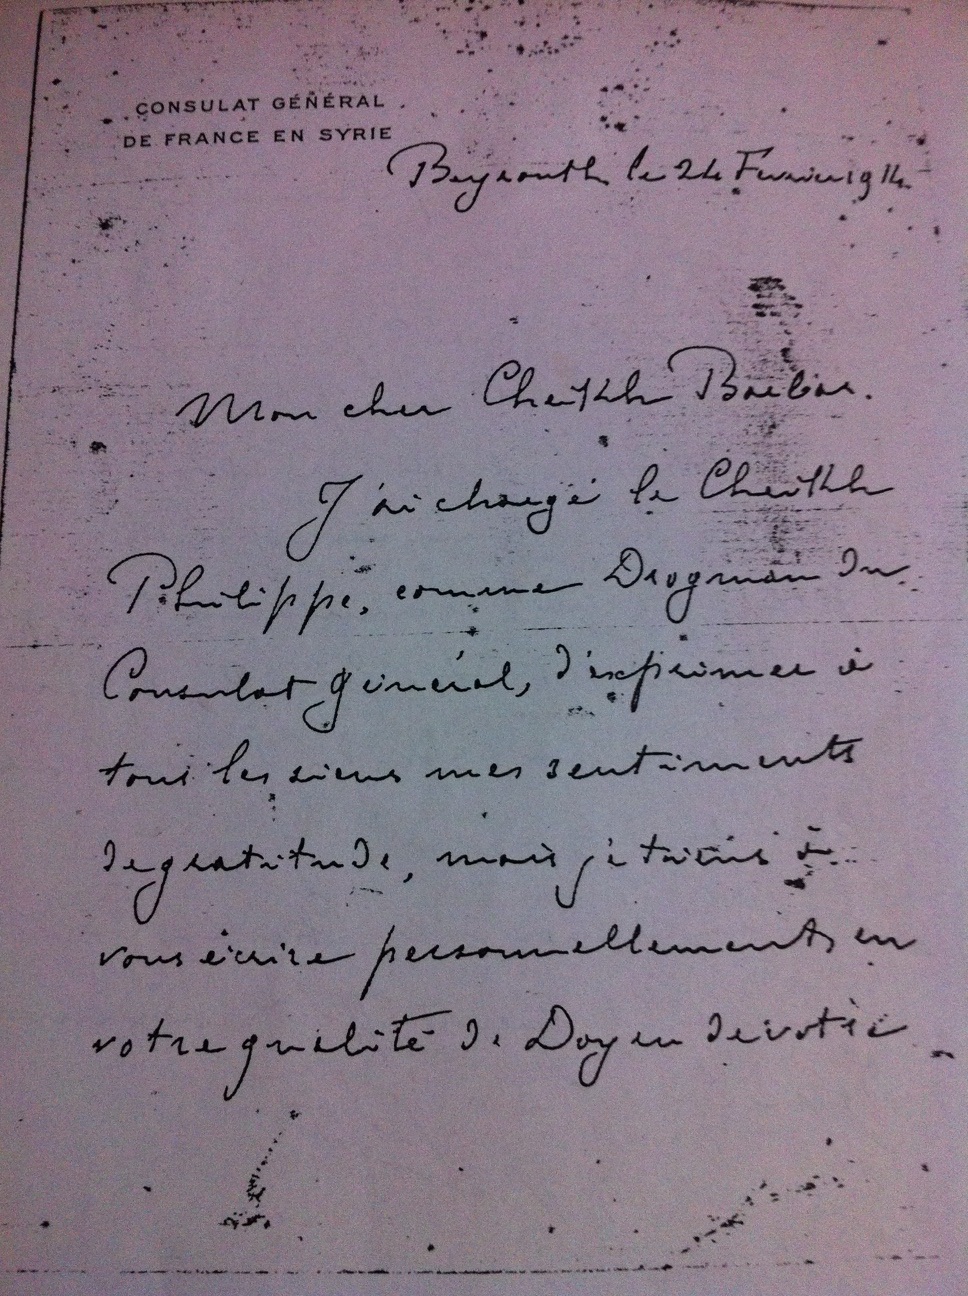 CONSULAT GÉNÉRAL
DE FRANCE EN SYRIE
Beyrouth le 24 Fevrier 1914.
Mon cher Cheikh Barbar.
J'ai chargé le Cheikh
Philippe, comme Drogman du
Consulat général, d'exprimer à
tous les siens mes sentiments
de gratitude, mais je tiens à
vous écrire personnellement, en
votre qualité de Doyen de votre